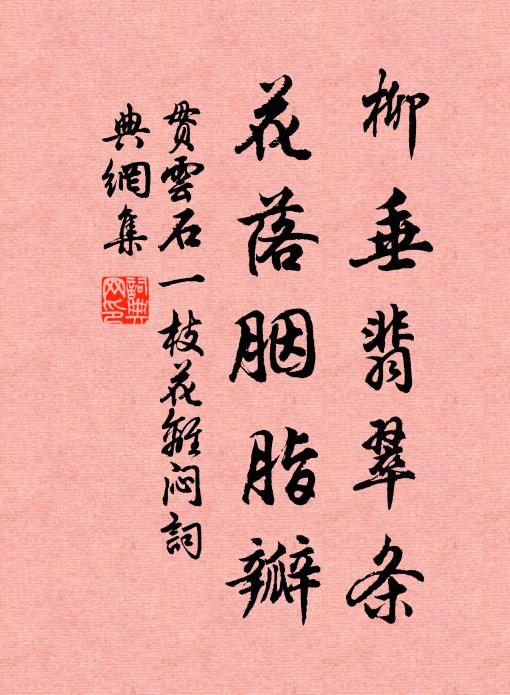 柳垂翡翠条
花落胭脂瓣
贯雲石一枝花離闷詞
典網集
詞典网印